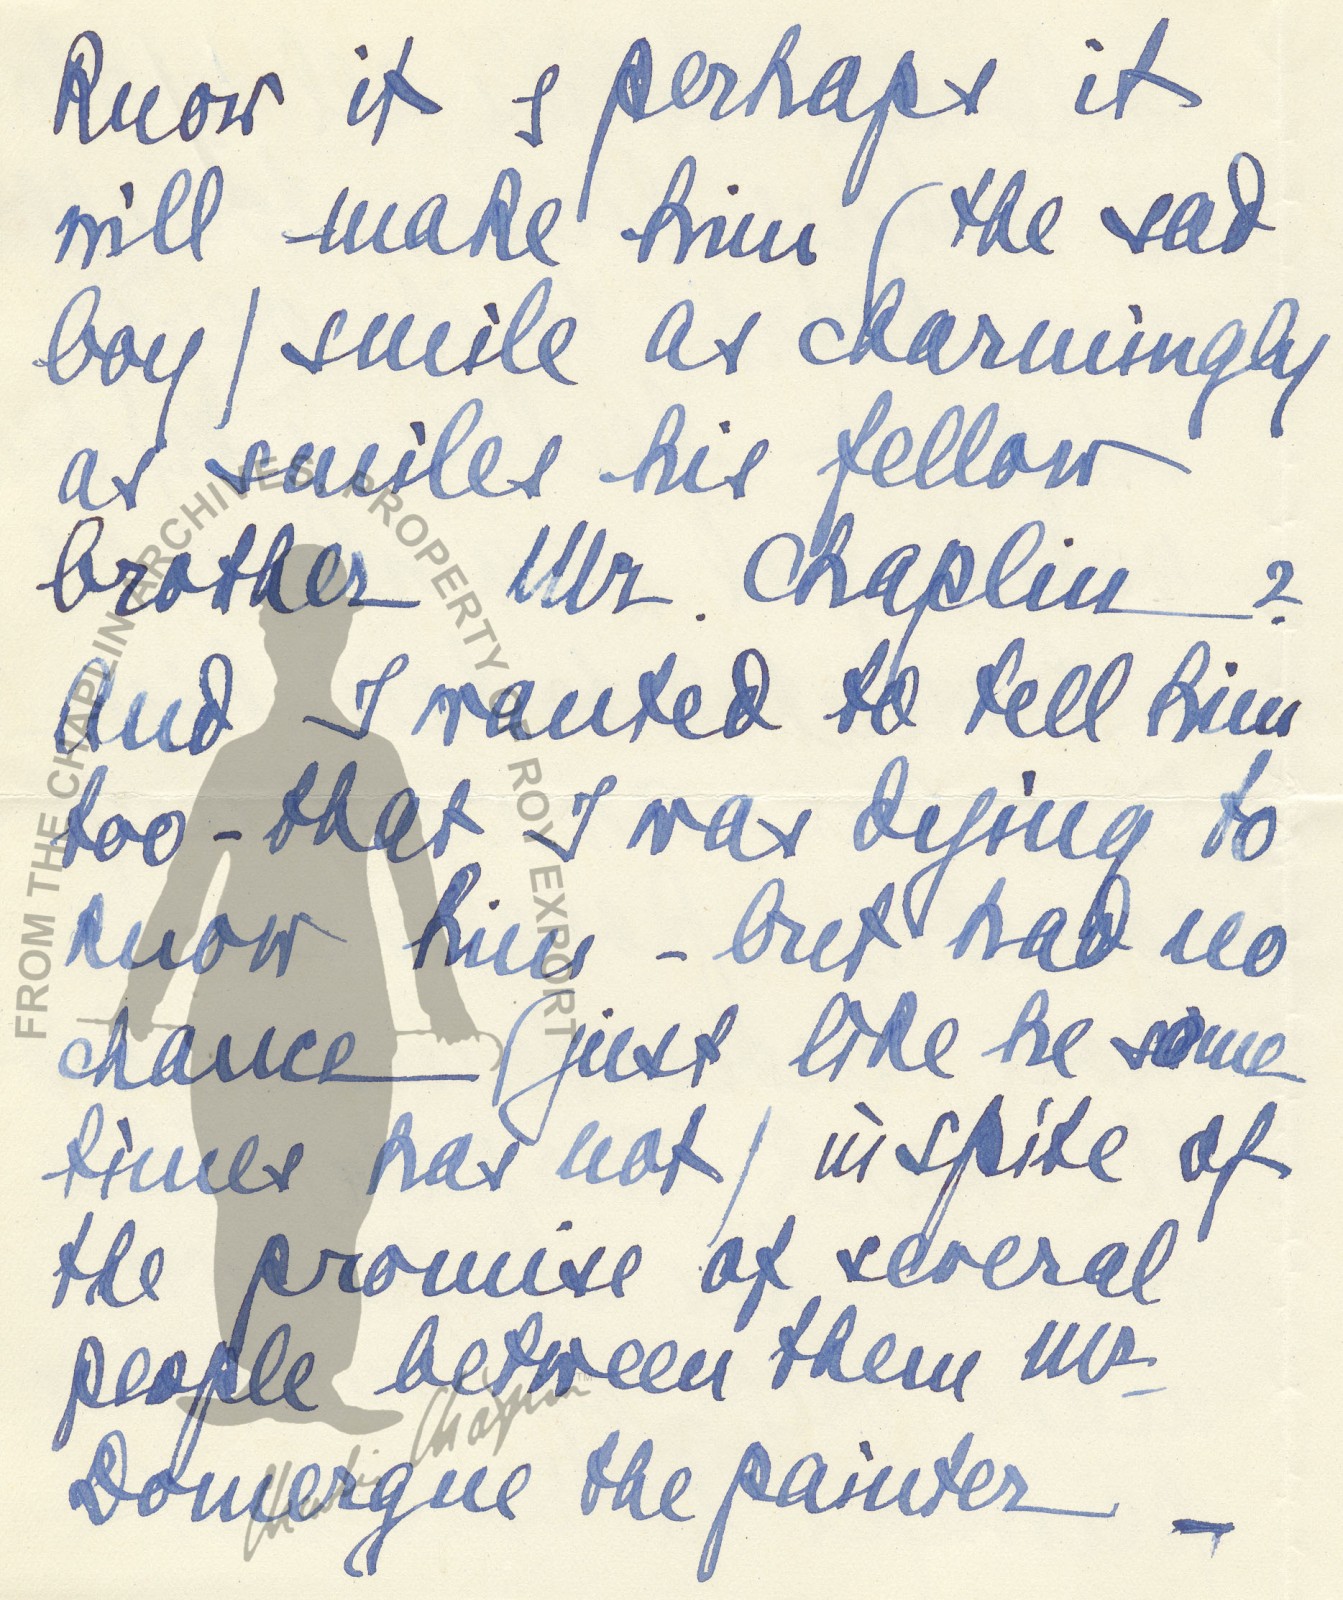 Know it & perhaps it
will make him (the sad
boy/ smile as charmingly
as smiles his fellow
brother Mr. Chaplin ?
And I wanted to tell him
too - that I was dying to
know him - but had no
chance (just like he some
times has not/ inspite of
the promise of several
people between them Mr
Domergue the painter -
FROM THE CHAPLIN ARCHIVES PROPERTY OF ROY EXPORT
Charlie Chaplin™